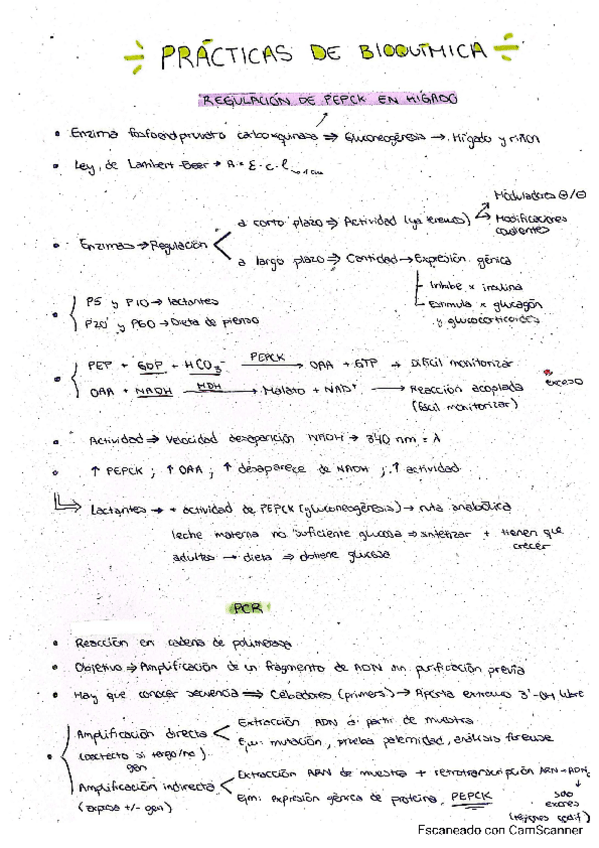 PRÁCTICAS DE BIOQUÍMICA
REGULACIÓN DE PEPCK EN HÍGADO
• Enzima fosfoenolpiruvato carboxiquinasa ⇒ Gluconeogénesis → Hígado y riñón
• Ley de Lambert-Beer → A = ε · c · l → 1 cm
• Enzimas → Regulación
a corto plazo ⇒ Actividad (ya tenemos)
Moduladores ⊖/⊕
Modificaciones covalentes
a largo plazo ⇒ Cantidad → Expresión génica
Inhibe x insulina
Estimula x glucagón y glucocorticoides
• P5 y P10 → lactantes
P20 y P60 → Dieta de pienso
• PEP + GDP + HCO3⁻ PEPCK → OAA + GTP → Difícil monitorizar
OAA + NADH MDH → Malato + NAD⁺ → Reacción acoplada
exceso
(fácil monitorizar)
• Actividad ⇒ Velocidad desaparición NADH → 340 nm = λ
• ↑ PEPCK ; ↑ OAA ; ↑ desaparece de NADH ; ↑ actividad
Lactantes → + actividad de PEPCK (gluconeogénesis) → ruta anabólica
leche materna no suficiente glucosa ⇒ sintetizar + tienen que
crecer
adultos → dieta ⇒ obtiene glucosa
PCR
• Reacción en cadena de polimerasa
• Objetivo ⇒ Amplificación de un fragmento de ADN sin purificación previa
• Hay que conocer secuencia ⇒ Cebadores (primers) → Aporta extremos 3'-OH libre
• Amplificación directa
(detecto si tengo/no)
gen
Extracción ADN a partir de muestra
Ejm: mutación, pruebas paternidad, análisis forense
Amplificación indirecta
(expresa +/- gen)
Extracción ARN de muestra + retrotranscripción ARN→ADNc
Ejm: expresión génica de proteína, PEPCK
solo
exones
(regiones codif)
Escaneado con CamScanner